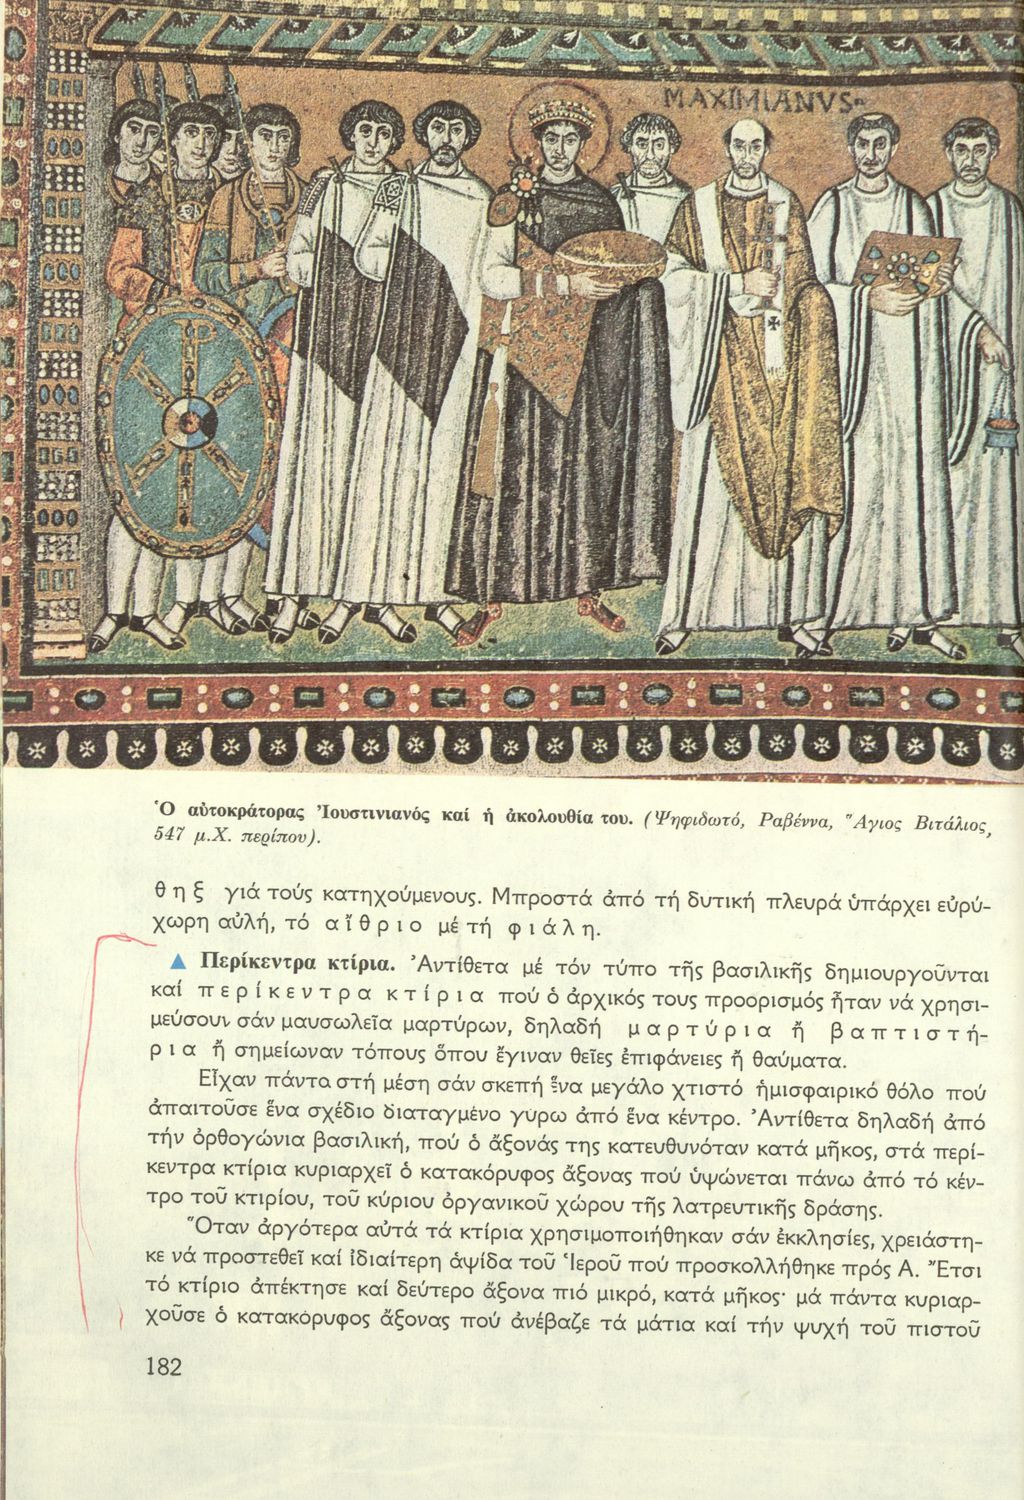 MAXIMIANVS
Ὁ αὐτοκράτορας Ἰουστινιανός καί ἡ ἀκολουθία του. (Ψηφιδωτό, Ραβέννα, Ἅγιος Βιτάλιος,
547 μ.Χ. περίπου).
θ η ξ γιά τούς κατηχούμενους. Μπροστά ἀπό τή δυτική πλευρά ὑπάρχει εὐρύ-
χωρη αὐλή, τό α ἴ θ ρ ι ο μέ τή φ ι ά λ η.
▲ Περίκεντρα κτίρια. Ἀντίθετα μέ τόν τύπο τῆς βασιλικῆς δημιουργοῦνται
καί π ε ρ ί κ ε ν τ ρ α κ τ ί ρ ι α πού ὁ ἀρχικός τους προορισμός ἦταν νά χρησι-
μεύσουν σάν μαυσωλεῖα μαρτύρων, δηλαδή μ α ρ τ ύ ρ ι α ἤ β α π τ ι σ τ ή-
ρ ι α ἤ σημείωναν τόπους ὅπου ἔγιναν θεῖες ἐπιφάνειες ἤ θαύματα.
Εἶχαν πάντα στή μέση σάν σκεπή ἕνα μεγάλο χτιστό ἡμισφαιρικό θόλο πού
ἀπαιτοῦσε ἕνα σχέδιο διαταγμένο γύρω ἀπό ἕνα κέντρο. Ἀντίθετα δηλαδή ἀπό
τήν ὀρθογώνια βασιλική, πού ὁ ἄξονάς της κατευθυνόταν κατά μῆκος, στά περί-
κεντρα κτίρια κυριαρχεῖ ὁ κατακόρυφος ἄξονας πού ὑψώνεται πάνω ἀπό τό κέν-
τρο τοῦ κτιρίου, τοῦ κύριου ὀργανικοῦ χώρου τῆς λατρευτικῆς δράσης.
Ὅταν ἀργότερα αὐτά τά κτίρια χρησιμοποιήθηκαν σάν ἐκκλησίες, χρειάστη-
κε νά προστεθεῖ καί ἰδιαίτερη ἁψίδα τοῦ Ἱεροῦ πού προσκολλήθηκε πρός Α. Ἔτσι
τό κτίριο ἀπέκτησε καί δεύτερο ἄξονα πιό μικρό, κατά μῆκος· μά πάντα κυριαρ-
χοῦσε ὁ κατακόρυφος ἄξονας πού ἀνέβαζε τά μάτια καί τήν ψυχή τοῦ πιστοῦ
182